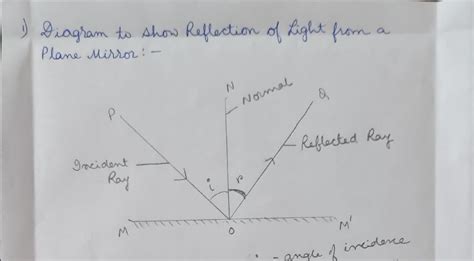 i) Diagram to show Reflection of Light from a
Plane Mirror:-
N
Normal
Q
P
Reflected Ray
Incident
Ray
i
r
M
O
M'
i - angle of incidence